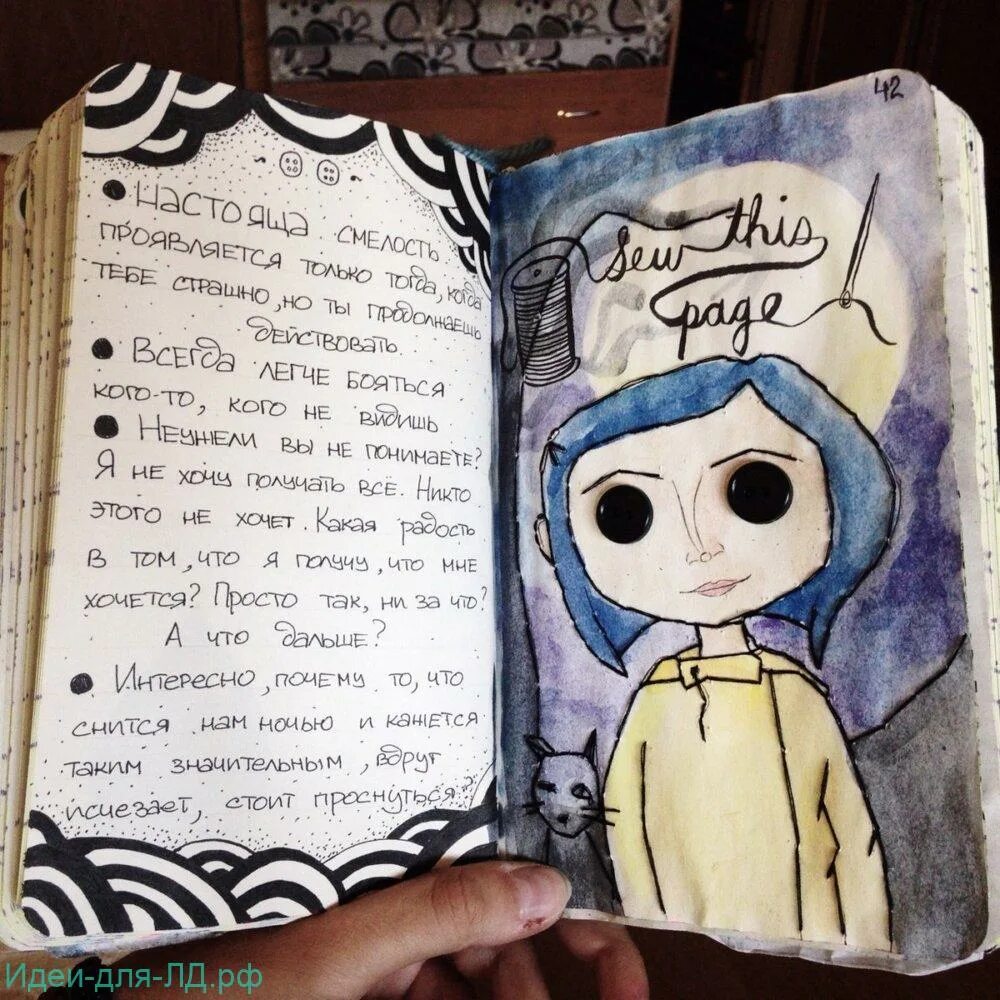 • Настояща смелость
проявляется только тогда, когда
тебе страшно, но ты продолнаешь
действовать.
• Всегда легче бояться
кого-то, кого не видишь
• Неужели вы не понимаете?
Я не хочу получать всё. Никто
этого не хочет. Какая радость
в том, что я получу, что мне
хочется? Просто так, ни за что?
А что дальше?
• Интересно, почему то, что
снится нам ночью и кажется
таким значительным, вдруг
исчезает, стоит проснуться?
42
Sew this
page
Идеи-для-ЛД.рф